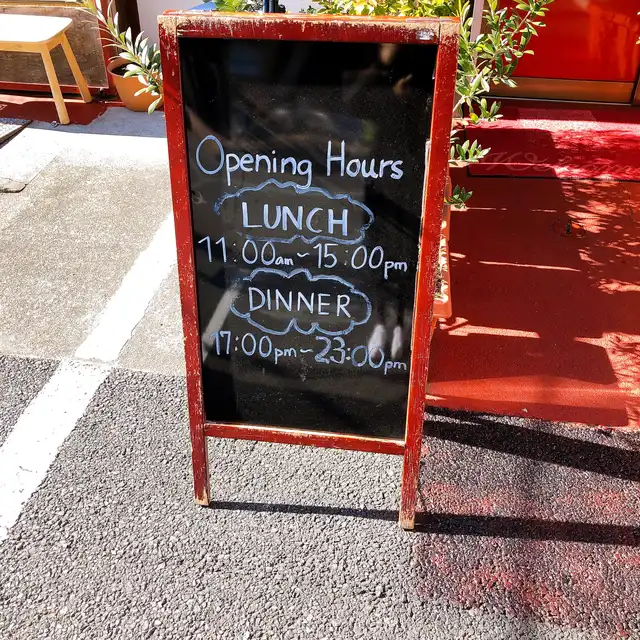 Opening Hours
LUNCH
11:00am~15:00pm
DINNER
17:00pm~23:00pm